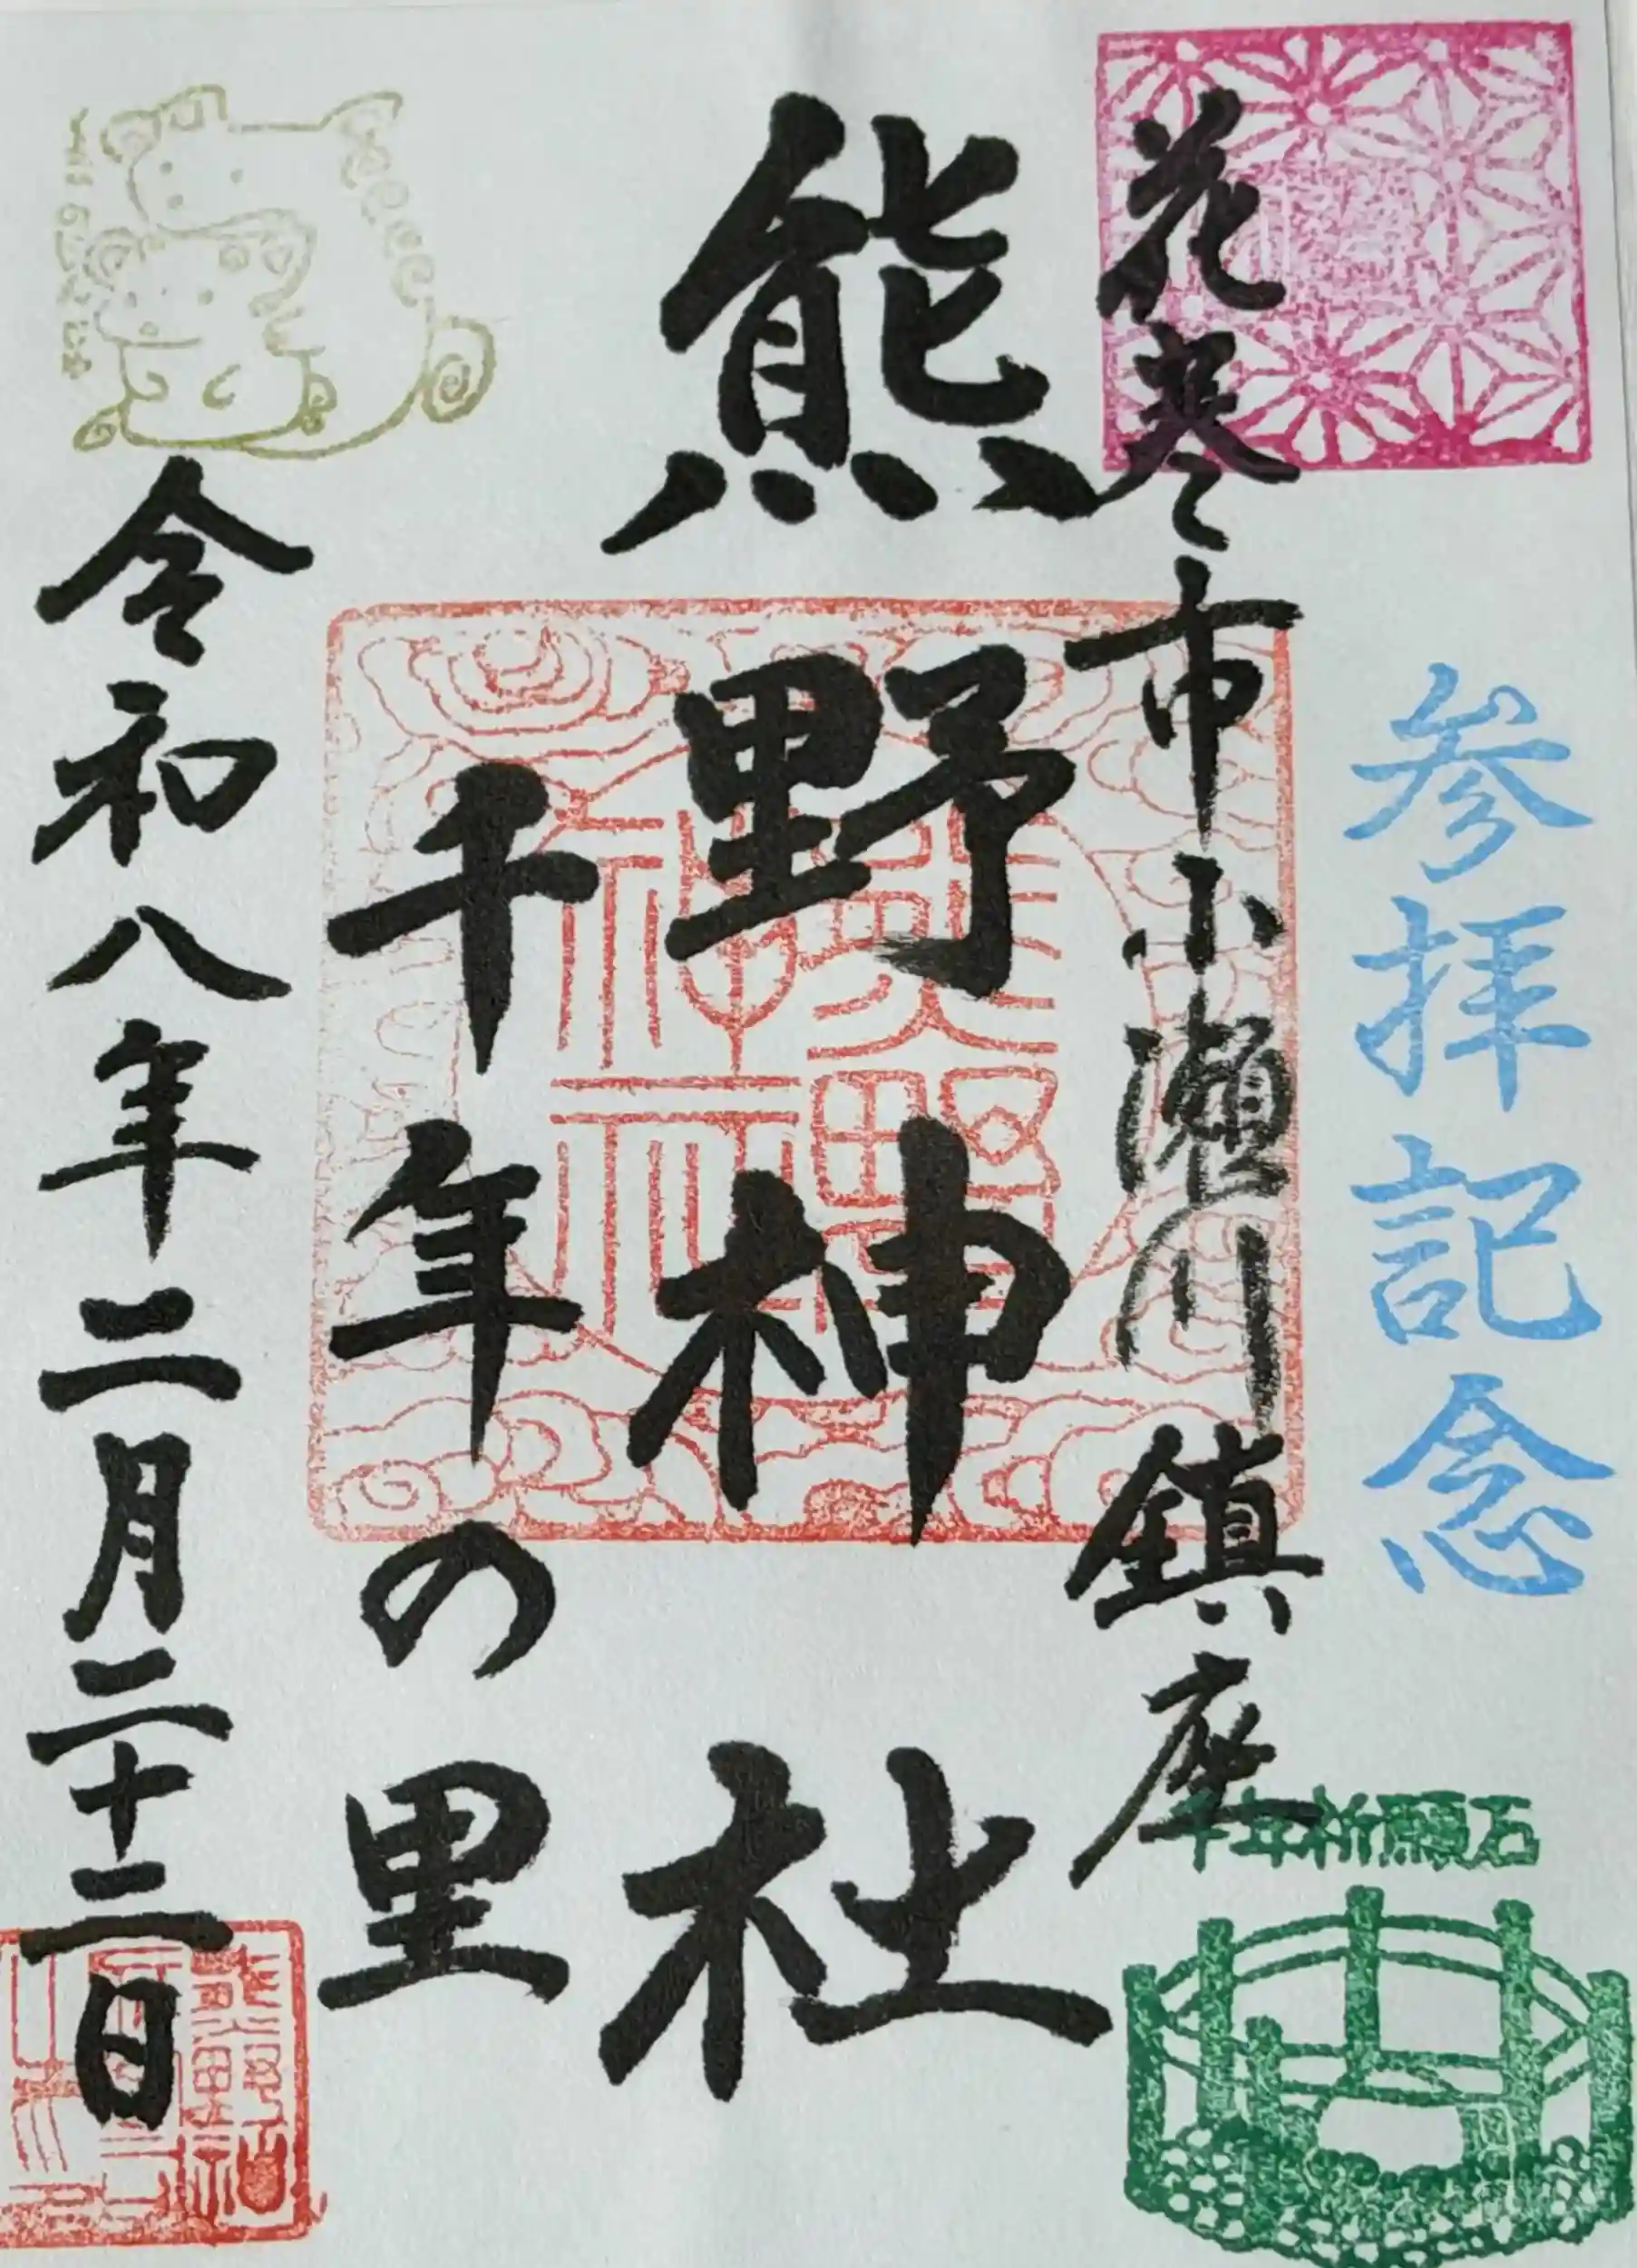 参拝記念
花巻市小瀬川鎮座
熊野神社
千年の里
令和八年二月二十二日
千年祈願石